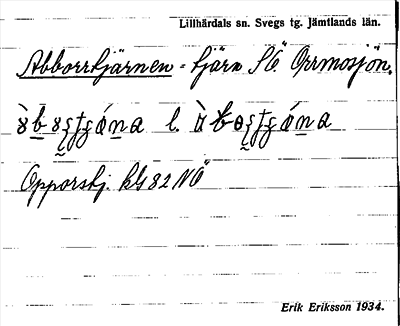 Lillhärdals sn. Svegs tg. Jämtlands län.
Abborrtjärnen = tjärn SÖ Orrmosjön.
l.
Opporstj. kG 82 NÖ
Erik Eriksson 1934.